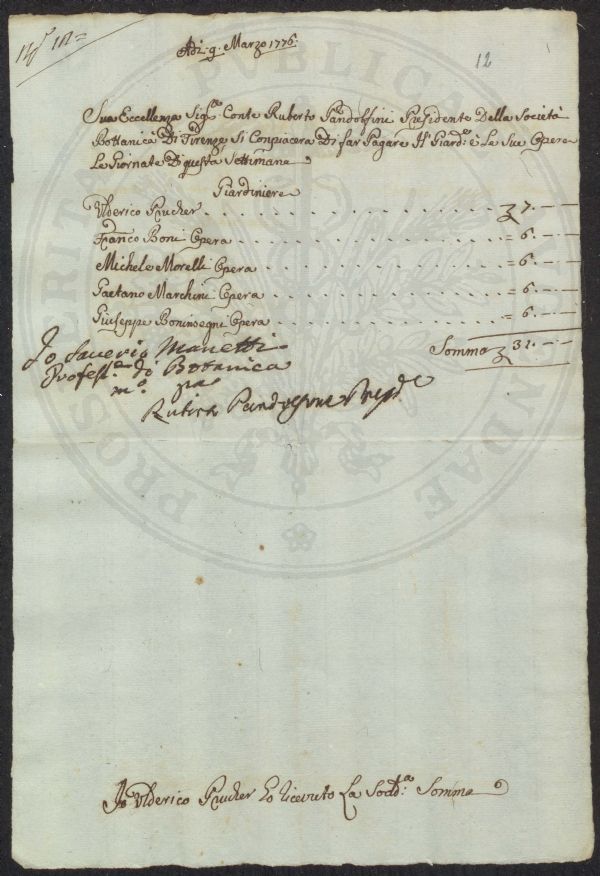 N.º 12=
Adi: 9. Marzo 1776:
12
Sua Eccellenza Sig:e Conte Ruberto Pandolfini Presidente Della Società
Bottanica Di Firenze Si Conpiacera Di far Pagare Al' Giard:e è Le Sue Opere
Le Giornate Di questa Settimana
Giardiniere
Ulderico Prucher . . . . . . . . . . . . . . . . 7. — —
Franco Boni Opera . . . . . . . . . . . . . . . = 6. — —
Michele Morelli Opera . . . . . . . . . . . . . = 6. — —
Gaetano Marchini Opera . . . . . . . . . . . . = 6. — —
Giuseppe Boninsegni Opera . . . . . . . . . . = 6. — —
Somma 31. — —
Io Saverio Manetti
Profess:e di Botanica
m.º pa
Pandolfini Presid:e
Io Ulderico Prucher ho ricevuto La Sodd:ta Somma
PUBLICA
PROSPERITATI AUGENDAE